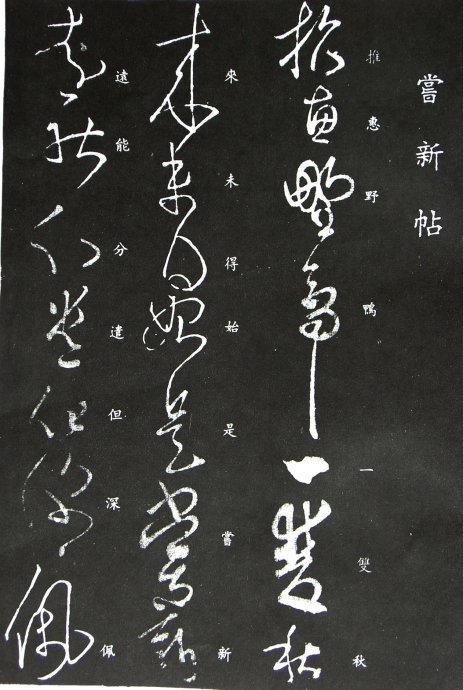 嘗新帖
推惠野鴨一雙秋
來未得始是嘗新
遠能分遣但深佩